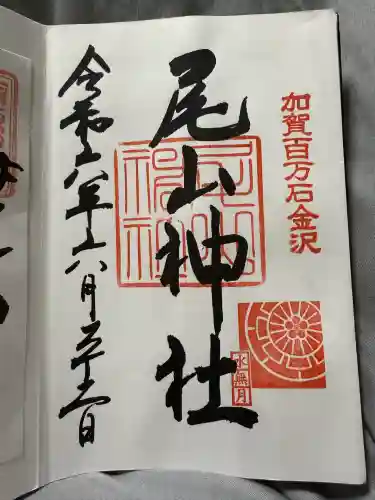 加賀百万石金沢
尾山神社
水無月
令和六年六月
日